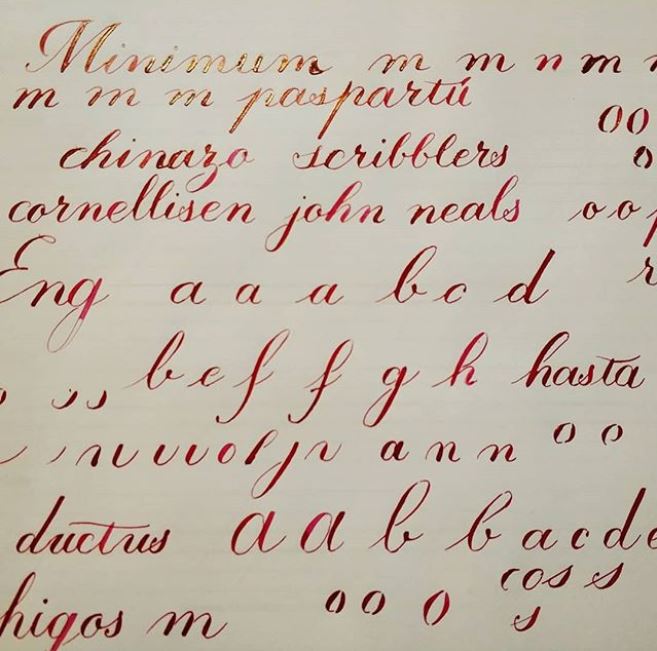 Minimum m m n m
m m m paspartú
oo
chinazo scribblers o
cornellisen john neals o o
Eng a a a b c d r
b e f f g h hasta
a n n o o
ductus a a b b a c d e
higos m o o o cos s
s